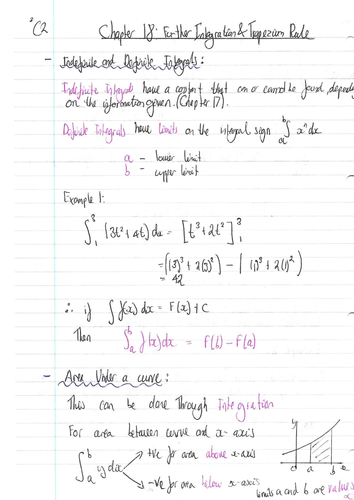 C2
Chapter 18: Further Integration & Trapezium Rule
- Indefinite and Definite Integrals:
Indefinite Integrals have a constant that can or cannot be found depends
on the information given. (Chapter 17).
Definite Integrals have limits on the integral sign ∫ₐᵇ xⁿ dx
a - lower limit
b - upper limit
Example 1:
∫₁³ (3t² + 4t) dx = [t³ + 2t²]₁³
= ((3)³ + 2(3)²) - ((1)³ + 2(1)²)
= 42
∴ if ∫ f(x) dx = F(x) + C
Then ∫ₐᵇ f(x) dx = F(b) - F(a)
- Area Under a curve:
This can be done through integration
For area between curve and x-axis
∫ₐᵇ y dx
+ve for area above x-axis
-ve for area below x-axis
0 a b x
limits a and b are values
x